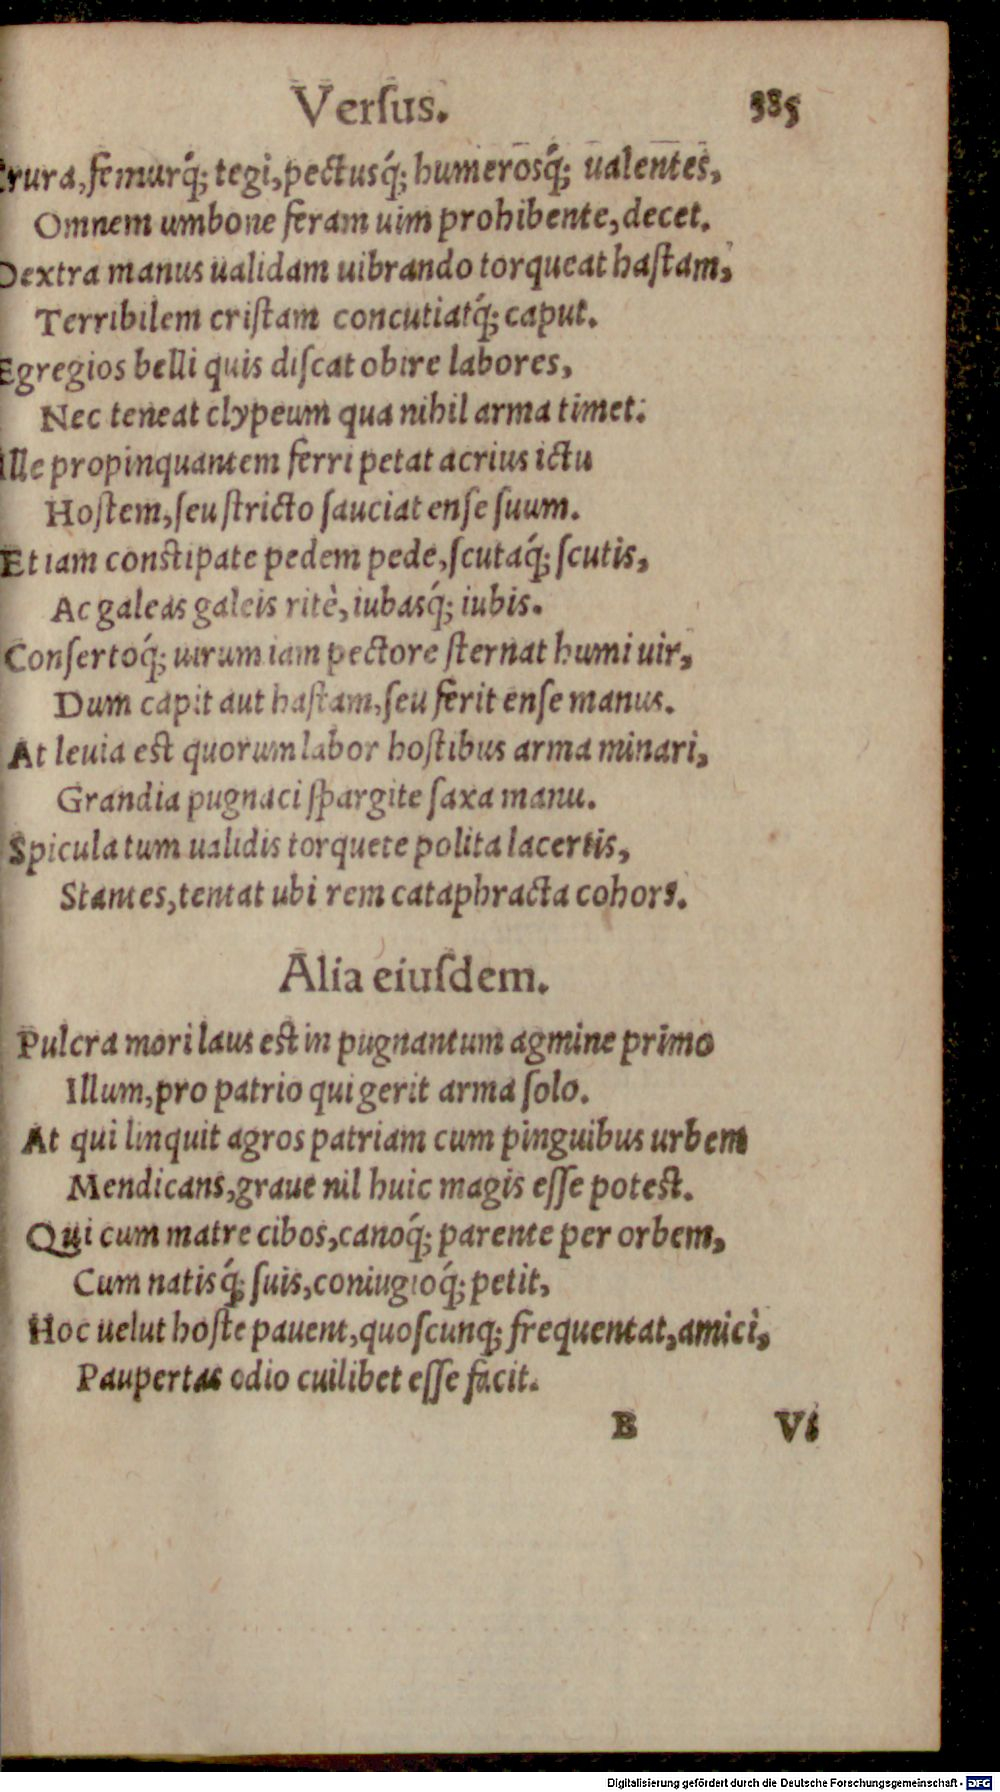 Verſus. 385
Crura, femurq́; tegi, pectusq́; humerosq́; ualentes,
Omnem umbone feram uim prohibente, decet.
Dextra manus ualidam uibrando torqueat haſtam,
Terribilem criſtam concutiatq́; caput.
Egregios belli quis diſcat obire labores,
Nec teneat clypeum qua nihil arma timet:
Ille propinquantem ferri petat acrius ictu
Hoſtem, ſeu ſtricto ſauciat enſe ſuum.
Etiam conſtipate pedem pede, ſcutaq́; ſcutis,
Ac galeas galeis ritè, iubasq́; iubis.
Conſertoq́; uirum iam pectore ſternat humi uir,
Dum capit aut haſtam, ſeu ferit enſe manus.
At leuia eſt quorum labor hoſtibus arma minari,
Grandia pugnaci ſpargite ſaxa manu.
Spicula tum ualidis torquete polita lacertis,
Stantes, tentat ubi rem cataphracta cohors.
Alia eiuſdem.
Pulcra mori laus eſt in pugnantum agmine primo
Illum, pro patrio qui gerit arma ſolo.
At qui linquit agros patriam cum pinguibus urbem
Mendicans, graue nil huic magis eſſe poteſt.
Qui cum matre cibos, canoq́; parente per orbem,
Cum natisq́; ſuis, coniugioq́; petit,
Hoc uelut hoſte pauent, quoſcunq; frequentat, amici,
Paupertas odio cuilibet eſſe facit.
B Vi
Digitalisierung gefördert durch die Deutsche Forschungsgemeinschaft - DFG